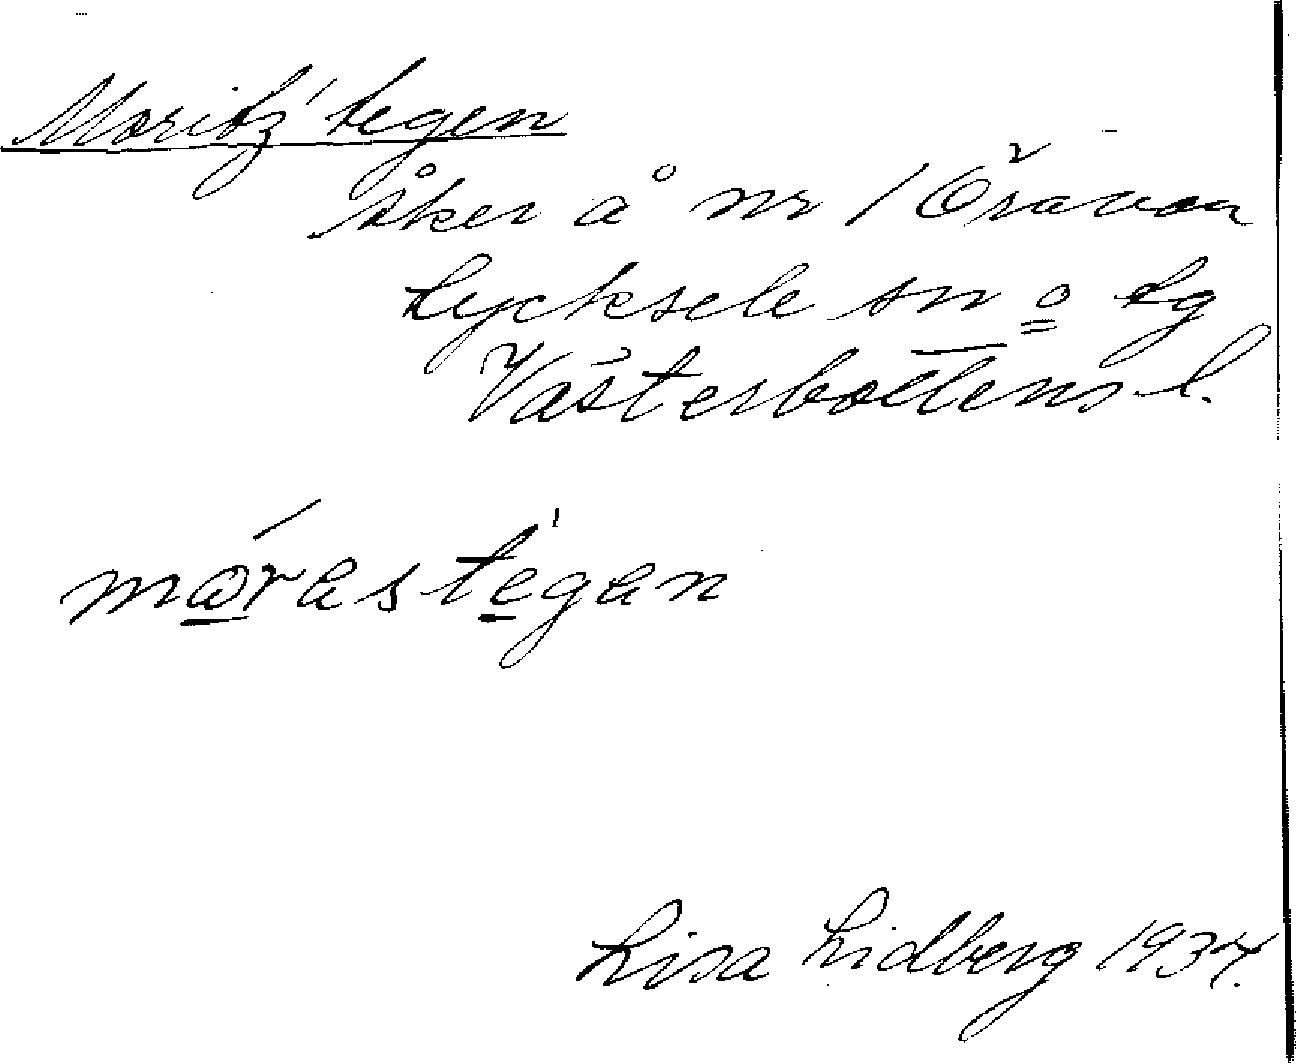 Moritz' tegen
åker å nr 1 Öravan
Lycksele sn o Lg
Västerbottens l.
mo̲rastegan
Lisa Lidberg 1934.